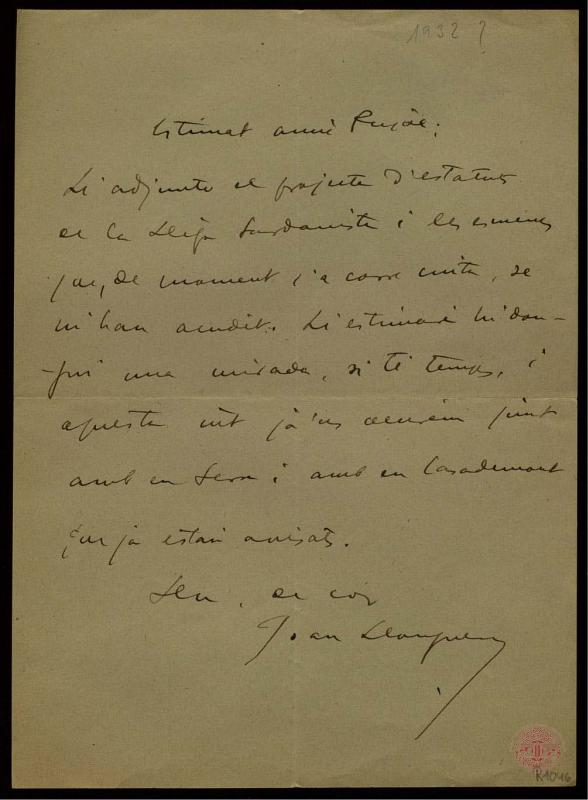 1932?
Estimat amic Pujol:
Li adjunto el projecte d'estatuts
de la Lliga Sardanista i les esmenes
que, de moment i a corre cuita, se
m'han acudit. Li estimaré hi don-
gui una mirada, si té temps, i
aquesta nit ja'ns veurem junt
amb en Serra i amb en Casademont
que ja estan avisats.
Seu, de cor
Joan Llongueras
R1046